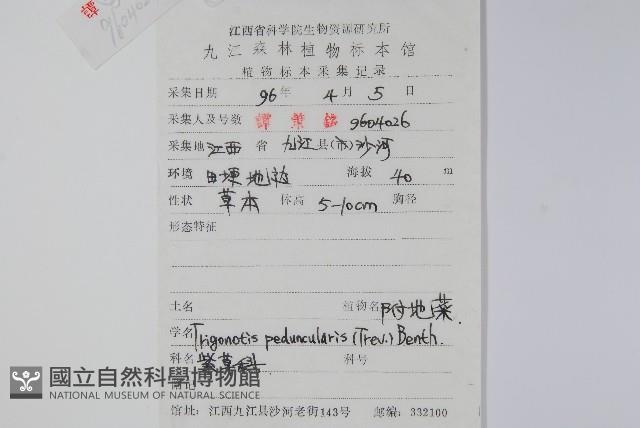 譚
9604026
江西省科学院生物资源研究所
九江森林植物标本馆
植物标本采集记录
采集日期 96年 4月 5日
采集人及号数 譚策銘 9604026
采集地 江西 省 九江 县(市) 沙河
环境 田埂地边 海拔 40 m
性状 草本 体高 5-10cm 胸径
形态特征
土名 植物名 附地菜.
学名 Trigonotis peduncularis (Trev.) Benth.
科名 紫草科 科号
附记
國立自然科學博物館
NATIONAL MUSEUM OF NATURAL SCIENCE
馆址:江西九江县沙河老街143号 邮编:332100